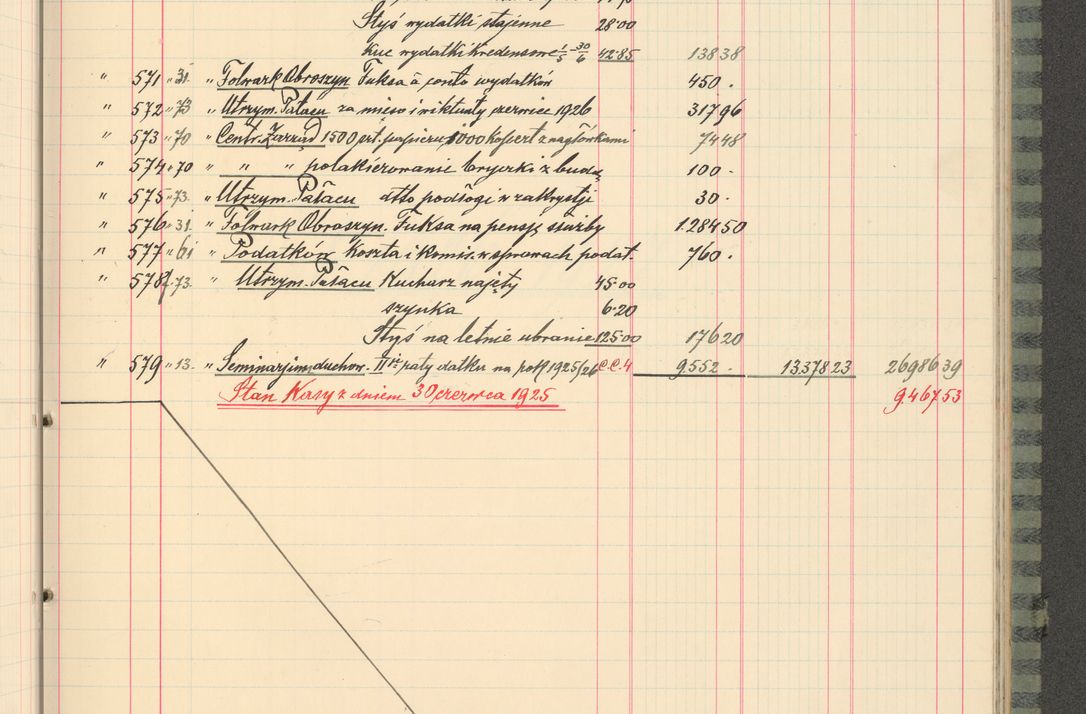 Styś wydatki stajenne 28·00
Kuc wydatki Kredensowe 1/5 - 30/6 42·85 138 38
" 571 " 31. " Folwark Obroszyn Fuksa à conto wydatków 450 .
" 572 " 73 " Utrzym. Pałacu za mięso i wiktuały czerwiec 1926 317 96
" 573 " 70 " Centr. Zarząd 1500 szt. papieru 1000 kopert z nagłówkami 74 48
" 574 " 70 " " " polakierowanie bryczki z budą 100 ·
" 575 " 73. " Utrzym. Pałacu atło podłogi w zakrystji 30 ·
" 576 " 31. " Folwark Obroszyn. Fuksa na pensję służby 1.284 50
" 577 " 61 " Podatków Koszta i komis. w sprawach podat. 760 .
" 578 " 73. " Utrzym. Pałacu Kucharz najęty 45·00
szynka 6·20
Styś na letnie ubranie 125·00 176 20
" 579 " 13. " Seminarjum duchow. II raty datku na 1925/26 C.C.4 9.552 . 13.378 23 26986 39
Stan Kasy z dniem 30 czerwca 1925 9.467 53